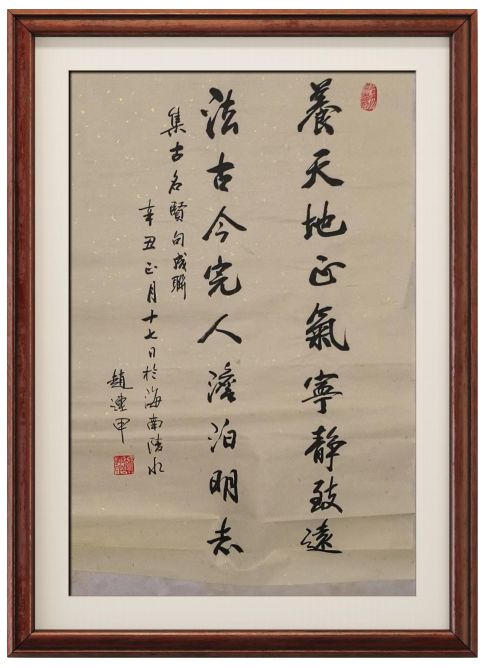 養天地正氣寧靜致遠
法古今完人澹泊明志
集古名賢句成聯
辛丑正月十七日於海南陵水
趙連甲